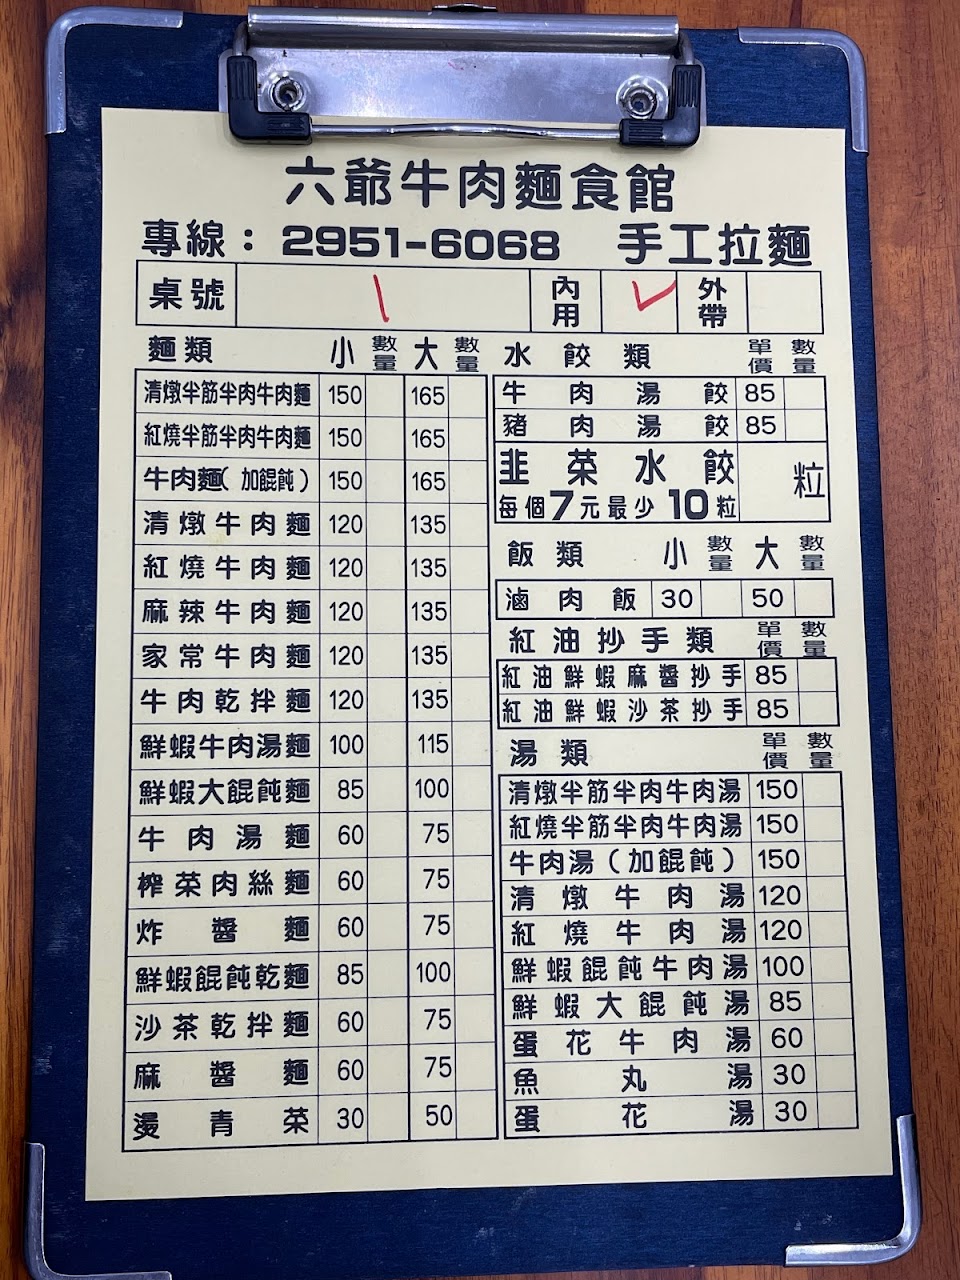 六爺牛肉麵食館
專線：2951-6068 手工拉麵
桌號 1 內用 ✓ 外帶
麵類 小 數量 大 數量
清燉半筋半肉牛肉麵 150 165
紅燒半筋半肉牛肉麵 150 165
牛肉麵(加餛飩) 150 165
清燉牛肉麵 120 135
紅燒牛肉麵 120 135
麻辣牛肉麵 120 135
家常牛肉麵 120 135
牛肉乾拌麵 120 135
鮮蝦牛肉湯麵 100 115
鮮蝦大餛飩麵 85 100
牛肉湯麵 60 75
榨菜肉絲麵 60 75
炸醬麵 60 75
鮮蝦餛飩乾麵 85 100
沙茶乾拌麵 60 75
麻醬麵 60 75
燙青菜 30 50
水餃類 單價 數量
牛肉湯餃 85
豬肉湯餃 85
韭菜水餃 粒
每個7元最少10粒
飯類 小 數量 大 數量
滷肉飯 30 50
紅油抄手類 單價 數量
紅油鮮蝦麻醬抄手 85
紅油鮮蝦沙茶抄手 85
湯類 單價 數量
清燉半筋半肉牛肉湯 150
紅燒半筋半肉牛肉湯 150
牛肉湯(加餛飩) 150
清燉牛肉湯 120
紅燒牛肉湯 120
鮮蝦餛飩牛肉湯 100
鮮蝦大餛飩湯 85
蛋花牛肉湯 60
魚丸湯 30
蛋花湯 30